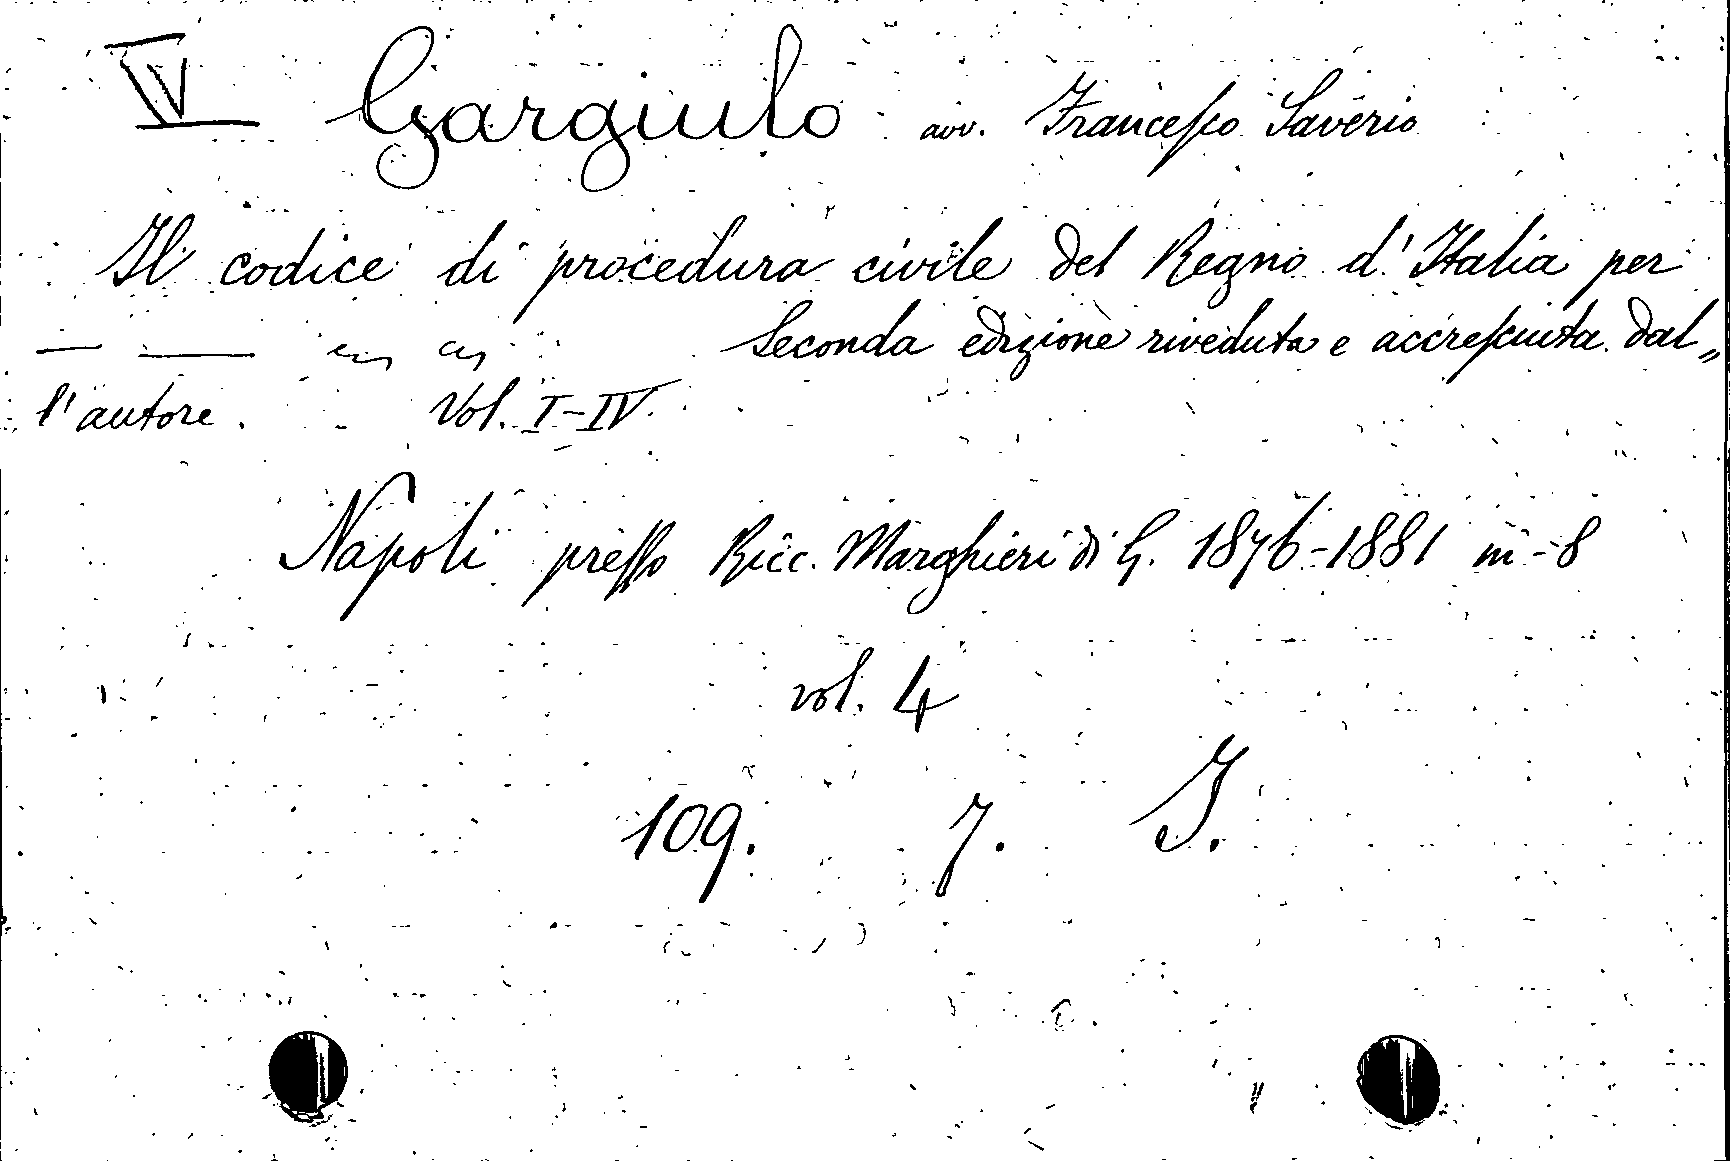 IV Gargiulo avv. Francesco Saverio
Il codice di procedura civile del Regno d'Italia per
— — Seconda edizione riveduta e accresciuta dal„
l'autore. Vol. I-IV.
Napoli presso Ricc. Marghieri di G. 1876-1881 in-8
vol. 4
109. 7. I.